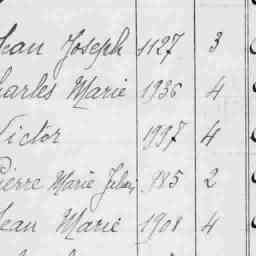 Jean Joseph 1127 3
Charles Marie 1936 4
Victor 1997 4
Pierre Marie 985 2
Jean Marie 1908 4